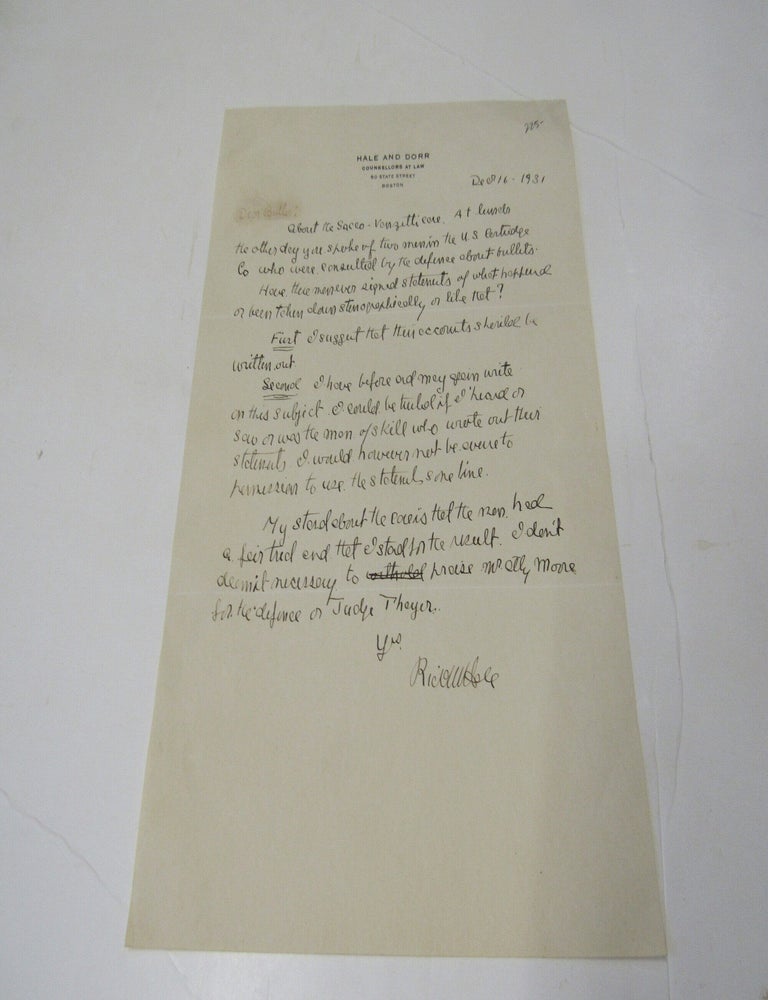 225-
HALE AND DORR
COUNSELLORS AT LAW
60 STATE STREET
BOSTON
Dec 16 - 1931
Dear
About the Sacco - Vanzetti case. At lunch
the other day you spoke of two men in the U.S. Cartridge
Co who were consulted by the defence about bullets.
Have these men ever signed statements of what happened
or been taken down stenographically or like that?
First I suggest that their accounts should be
written out
Second I have before and may again write
on this subject. I could be if I heard or
saw or was the man of skill who wrote out their
statements I would however not be to
permission to use the statements one line.
My stand about the case is that the men had
a fair trial and that I stand for the result. I don't
deem it necessary to withhold praise Mr Atty Moore
for the defence or Judge Thayer.
Yrs.
Rich W Hale